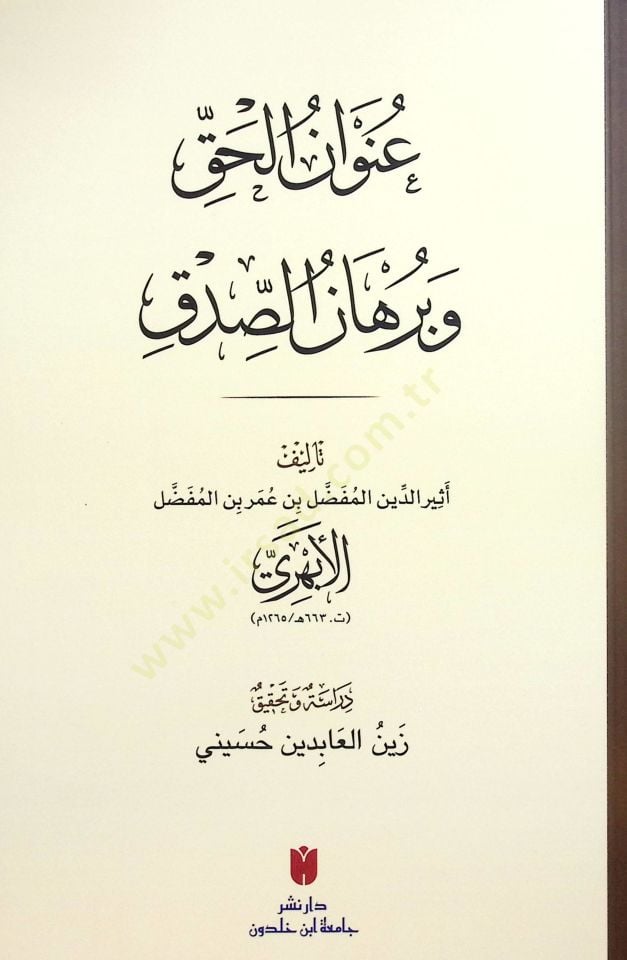 عُنْوَانُ الْحَقِّ
وَبُرْهَانُ الصِّدْقِ
تَأليف
أَثِير الدِّين المُفَضَّل بِن عُمَر بِن المُفَضَّل
الأَبْهَرِيّ
(ت. ٦٦٣هـ/١٢٦٥م)
دِرَاسَةٌ وَتَحْقِيقٌ
زَينُ العَابِدِين حُسَيني
دار نشر
جامعة ابن خلدون